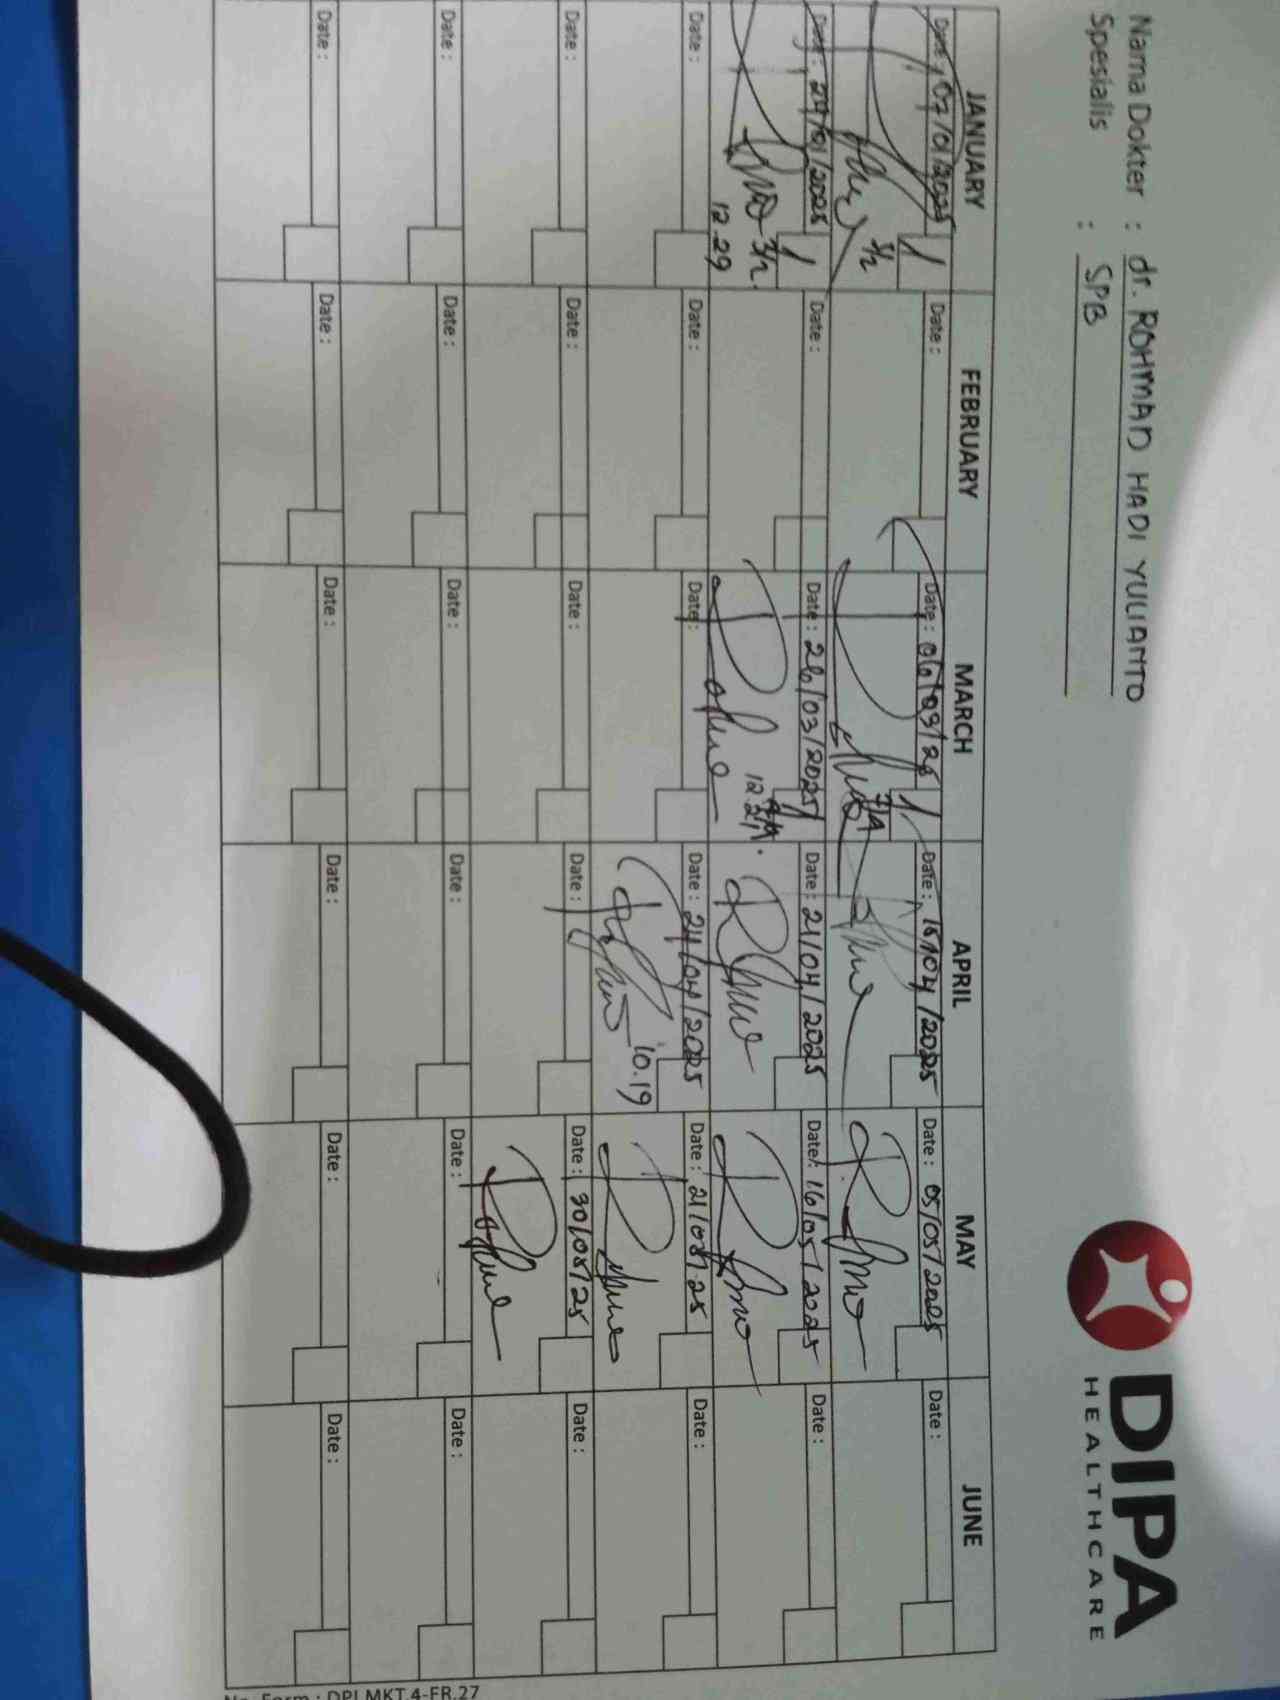 DIPA
HEALTHCARE
Nama Dokter : dr. ROHMAD HADI YULIANTO
Spesialis : SPB
JANUARY FEBRUARY MARCH APRIL MAY JUNE
Date : 07/01/2025 1 Date : Date : 06/03/25 1 Date : 15/04/2025 Date : 05/05/2025 Date :
3/2
Date : 24/01/2025 1 Date : Date : 26/03/2025 Date : 21/04/2025 Date : 16/05/2025 Date :
3/2.
12.29 12.21
Date : Date : Date : Date : 24/04/2025 Date : 21/05/25 Date :
10.19
Date : Date : Date : Date : Date : 30/05/25 Date :
Date : Date : Date : Date : Date : Date :
Date : Date : Date : Date : Date : Date :
No. Form : DPLMKT.4-FR.27